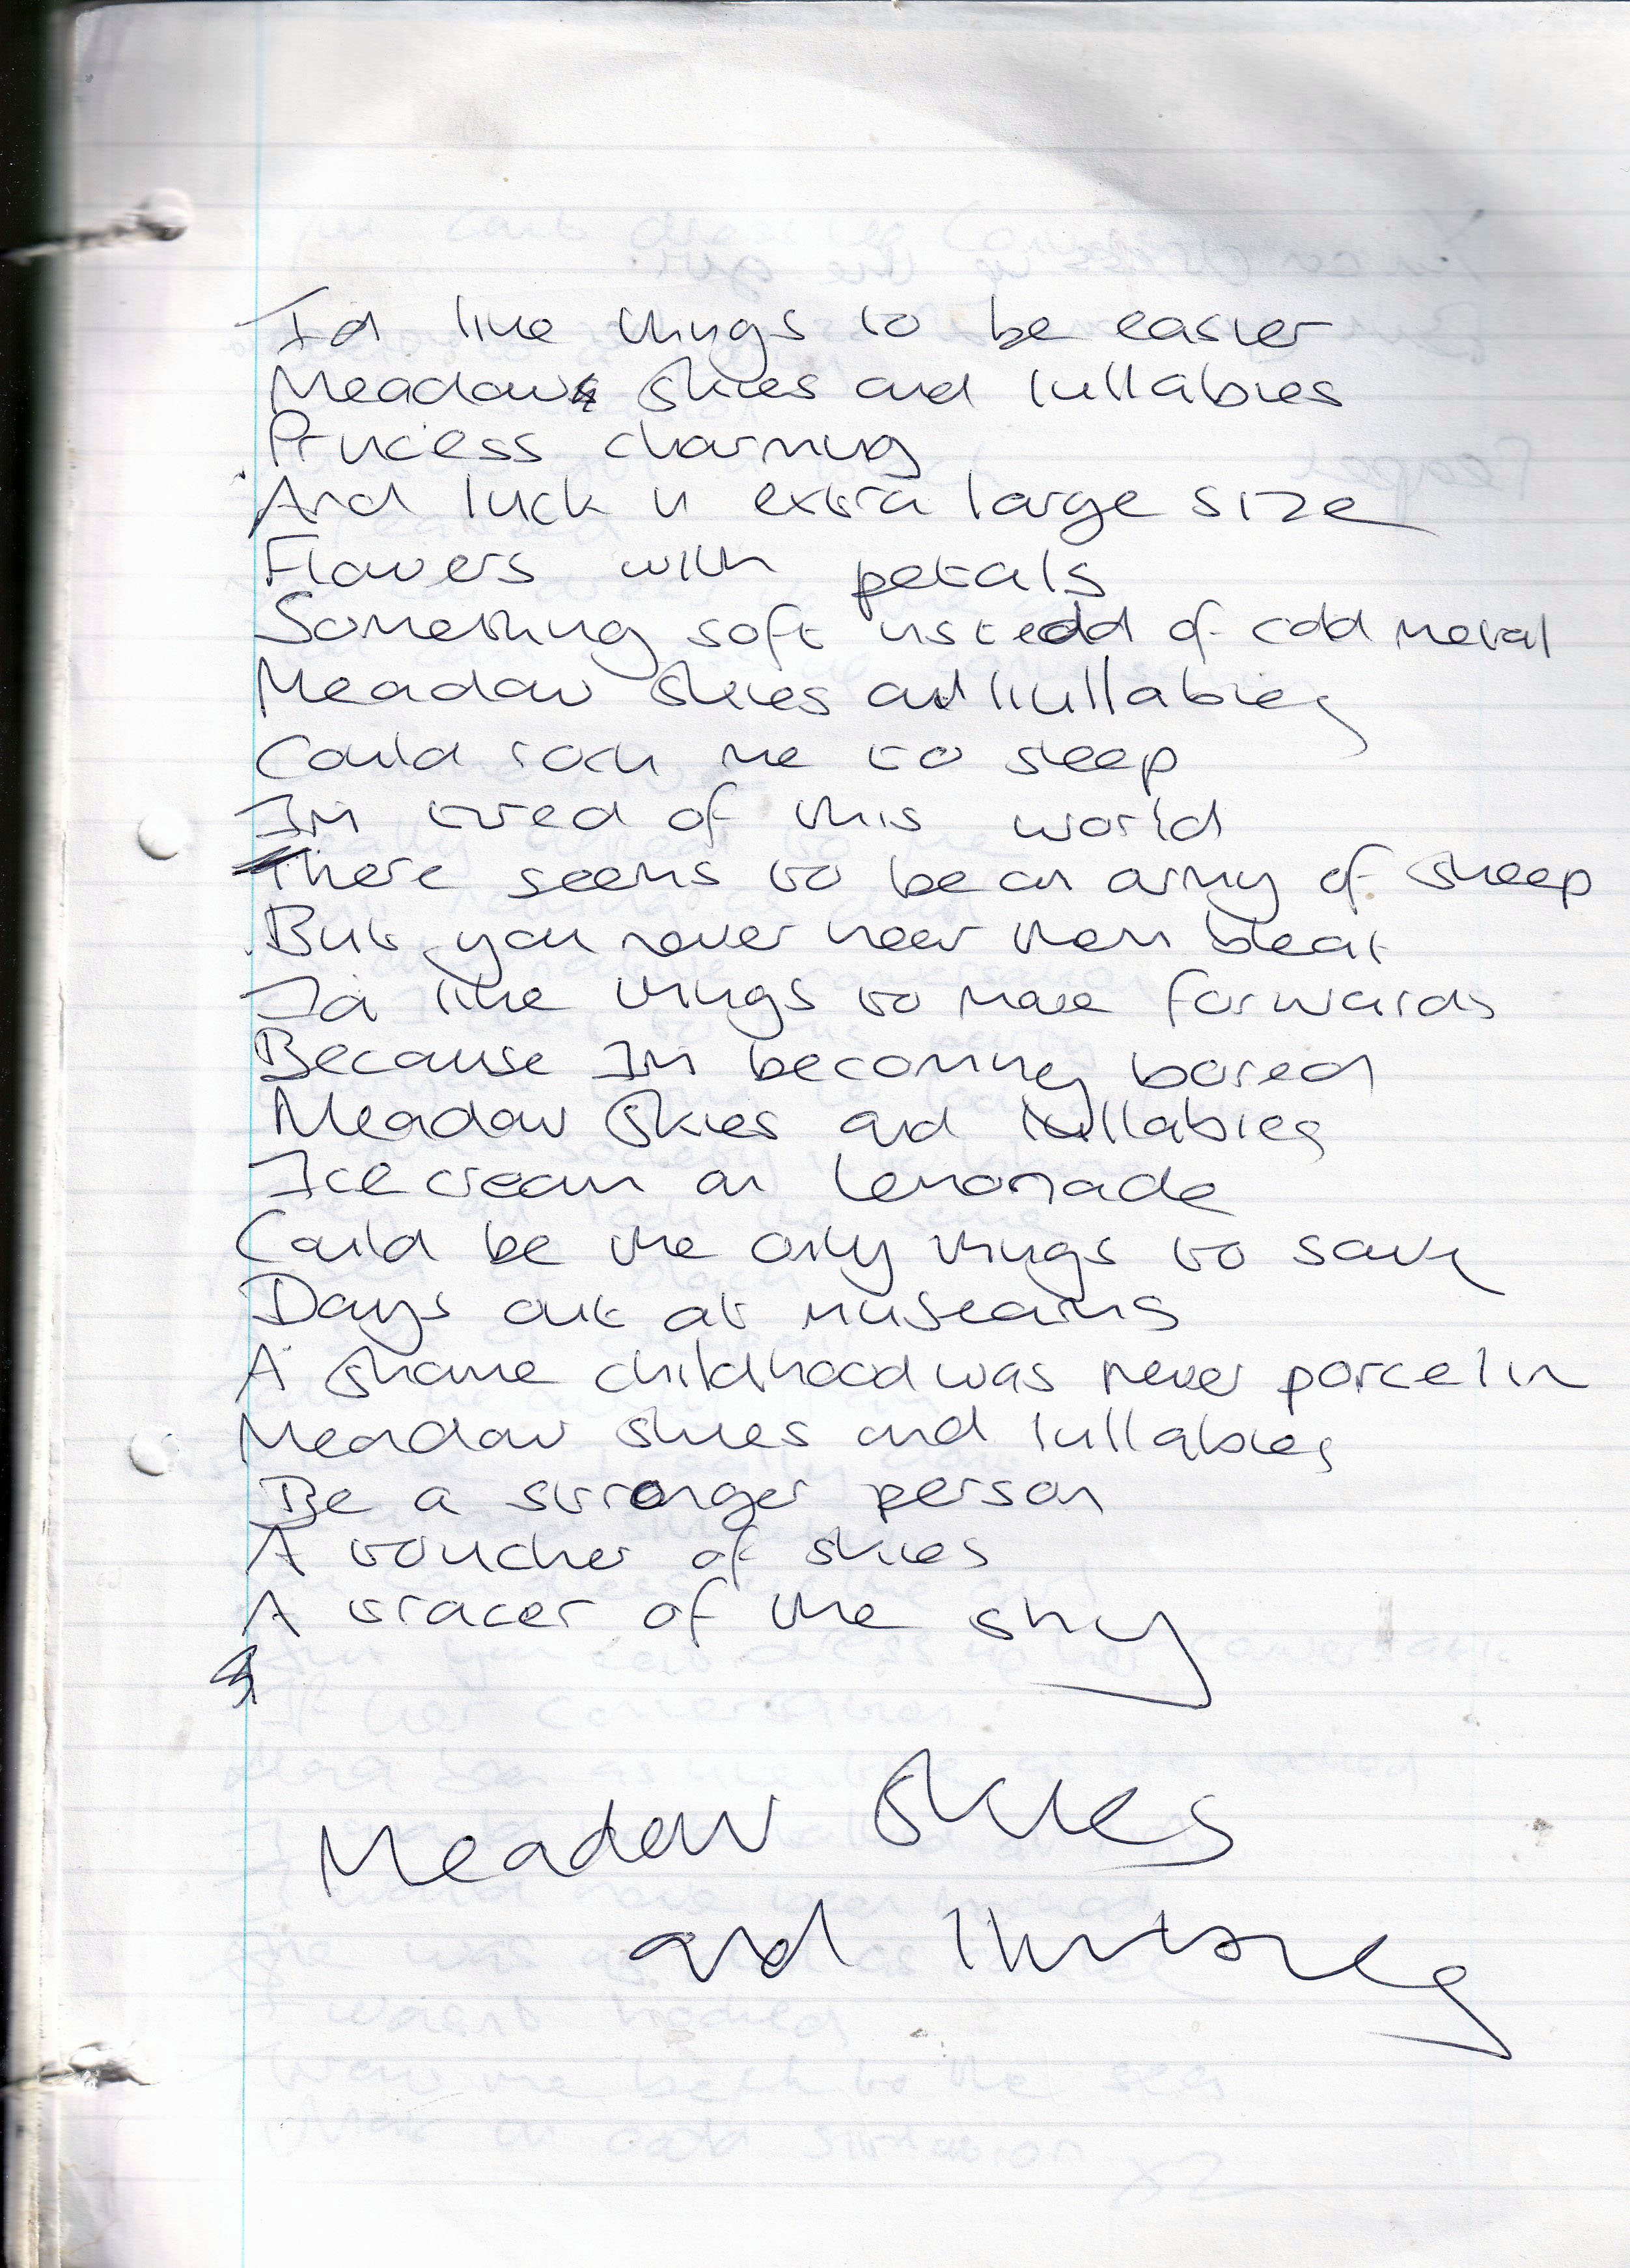 Id like things to be easier
Meadow Skies and lullabies
Princess charming
And luck in extra large size
Flowers with petals
Something soft instedd of cold metal
Meadow Skies and lullabies
Could rock me to sleep
Im tired of this world
There seems to be an army of Sheep
But you never hear them bleat
Id like things to move forwards
Because Im becoming bored
Meadow Skies and lullabies
Ice cream an lemonade
Could be the only things to save
Days out at museams
A shame childhood was never porcelin
Meadow skies and lullabies
Be a stronger person
A toucher of skies
A tracer of the sky
Meadow Skies
and lullabies